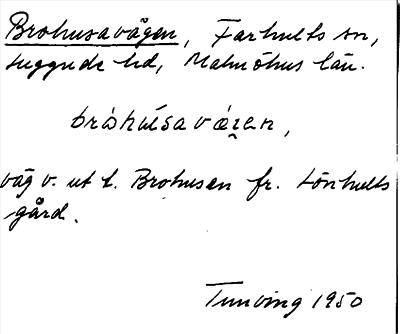 Brohusavägen, Farhults sn,
Luggude hd, Malmöhus län.
bròhúsavä́ꞬꞬen,
väg v. ut t. Brohusen fr. Lönhults
gård.
Tunving 1950